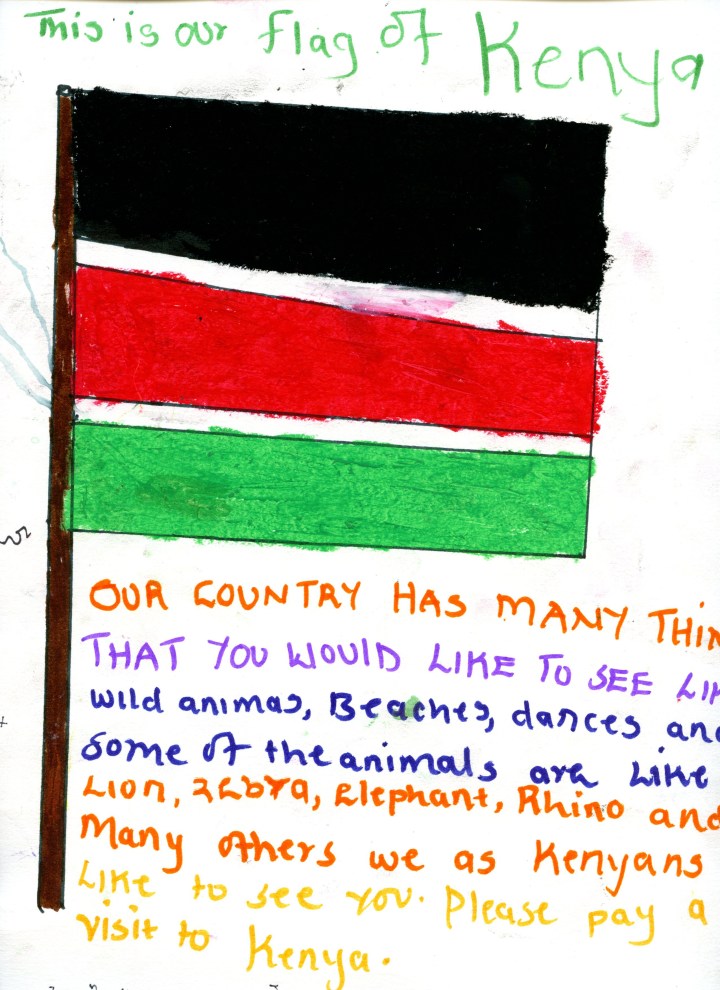 This is our flag of Kenya
OUR COUNTRY HAS MANY THIN
THAT YOU WOULD LIKE TO SEE LIK
wild animas, Beaches, dances and
some of the animals are Like
Lion, zebra, Elephant, Rhino and
Many others we as Kenyans
Like to see you. Please pay a
visit to Kenya.